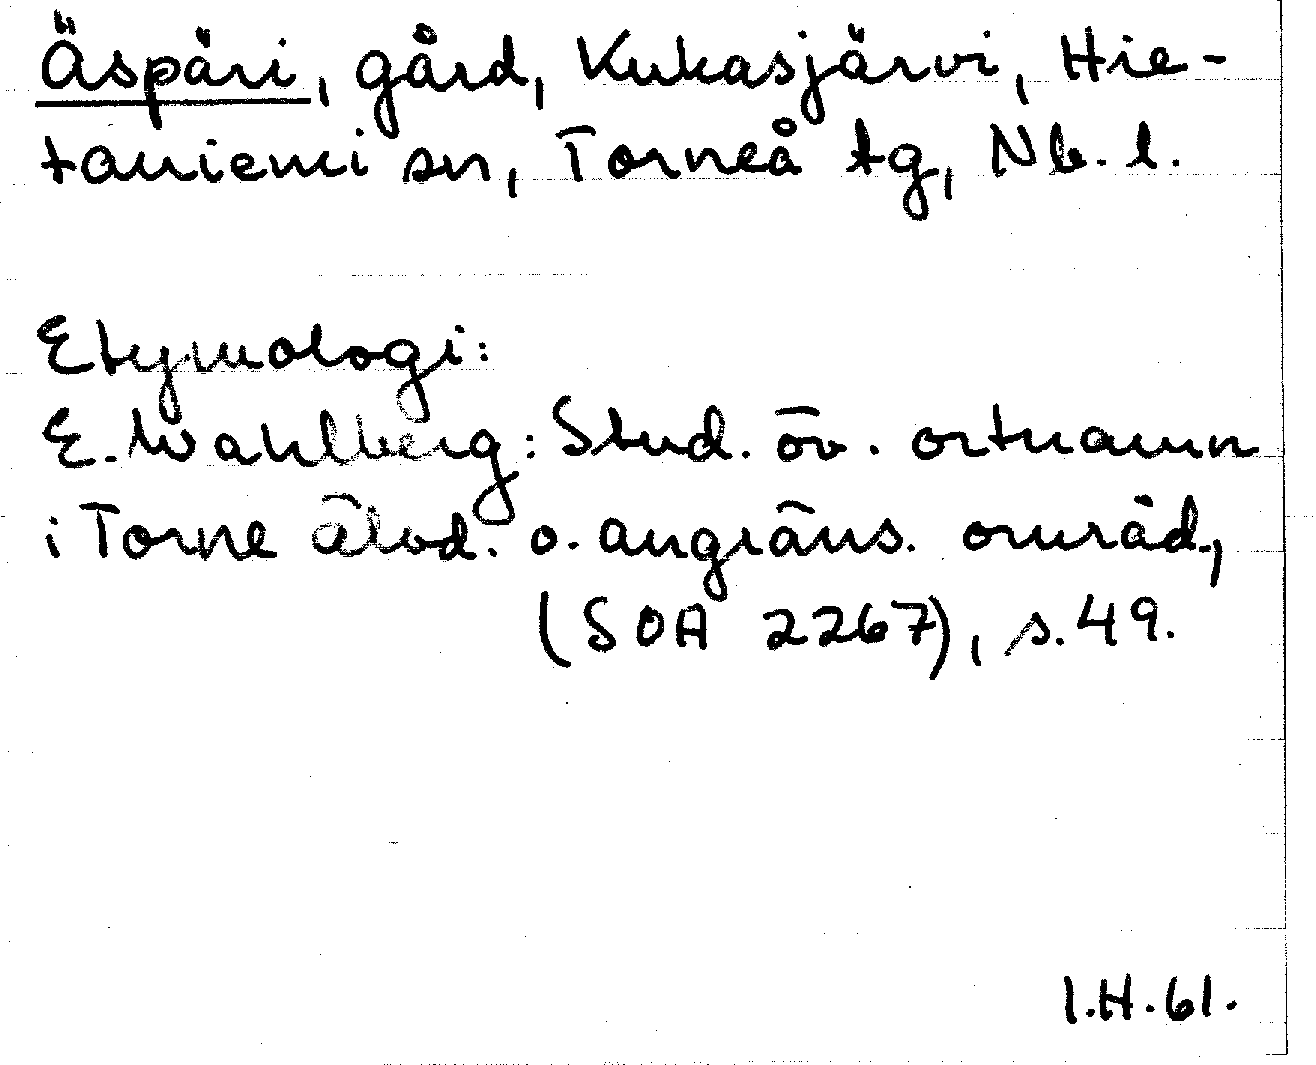 Äspäri, gård, Kukasjärvi, Hie-
taniemi sn, Torneå tg, Nb. l.
Etymologi:
E. Wahlberg: Stud. öv. ortnamn
i Torne älvd. o. angräns. områd.,
(SOA 2267), s. 49.
I.H. 61.